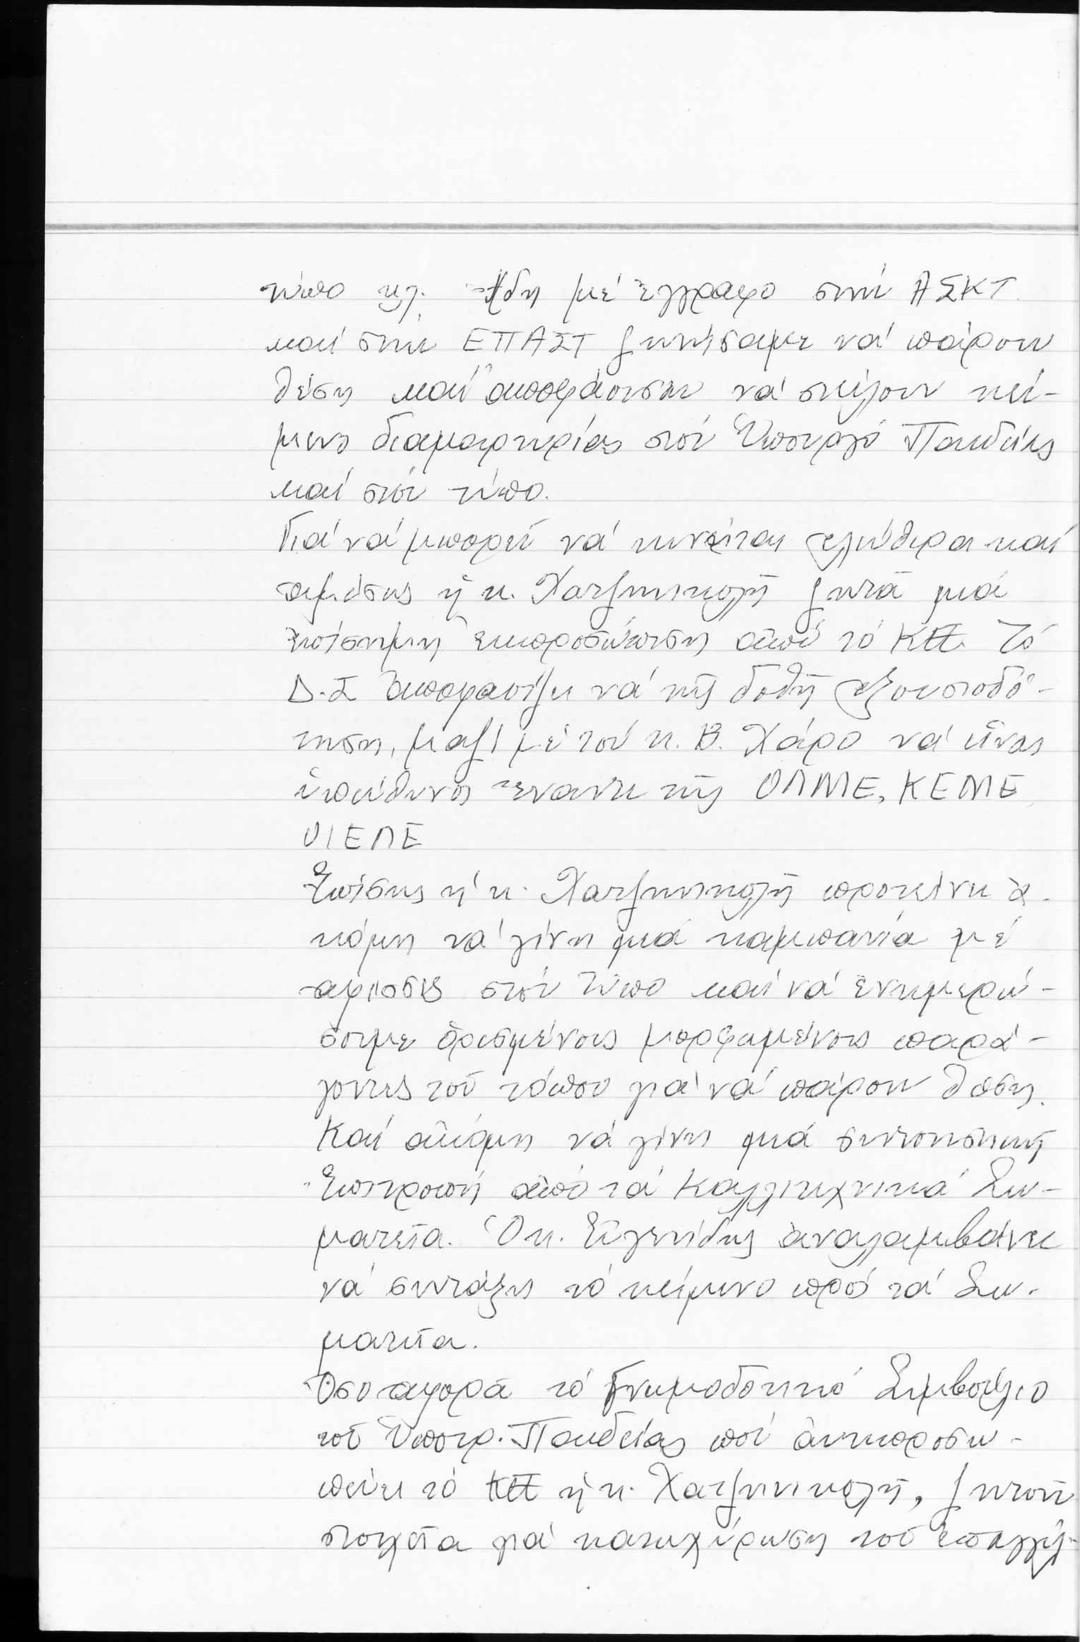 τύπο κλ. Ἤδη μέ ἔγγραφο στήν ΑΣΚΤ
καί στήν ΕΠΑΣΤ ζητήσαμε νά πάρουν
θέση καί ἀποφάσισαν νά στείλουν κεί-
μενο διαμαρτυρίας στόν Ὑπουργό Παιδείας
καί στόν τύπο.
Γιά νά μπορεῖ νά κινεῖται ἐλεύθερα καί
ἀμέσως ἡ κ. Χατζηνικολῆ ζητᾶ μιά
ἐπίσημη ἐκπροσώπιση ἀπό τό ΚΕΕ. Τό
Δ.Σ ἀποφασίζει νά τῆς δοθῆ ἐξουσιοδό-
τηση, μαζί μέ τόν κ. Β. Χάρο νά εἶναι
ὑπεύθυνος ἔναντι τῆς ΟΛΜΕ, ΚΕΜΕ
ΟΙΕΛΕ
Ἐπίσης ἡ κ. Χατζηνικολῆ προτείνει ἀ-
κόμη νά γίνη μιά καμπάνια μέ
ἀφίσσες στόν Τύπο καί νά ἐνημερώ-
σουμε ὁρισμένους μορφωμένους παρά-
γοντες τοῦ τόπου γιά νά πάρουν θέση.
Καί ἀκόμη νά γίνη μιά συντονιστική
Ἐπιτροπή ἀπό τά Καλλιτεχνικά Σω-
ματεῖα. Ὁ κ. Εὐγενίδης ἀναλαμβάνει
νά συντάξη τό κείμενο πρός τά Σω-
ματεῖα.
Ὅσο ἀφορᾶ τό Γνωμοδοτικό Συμβούλιο
τοῦ Ὑπουρ. Παιδείας πού ἀντιπροσω-
πεύει τό ΚΕΕ ἡ κ. Χατζηνικολῆ, ζητοῦν
στοιχεῖα γιά κατοχύρωση τοῦ ἐπαγγέλ-